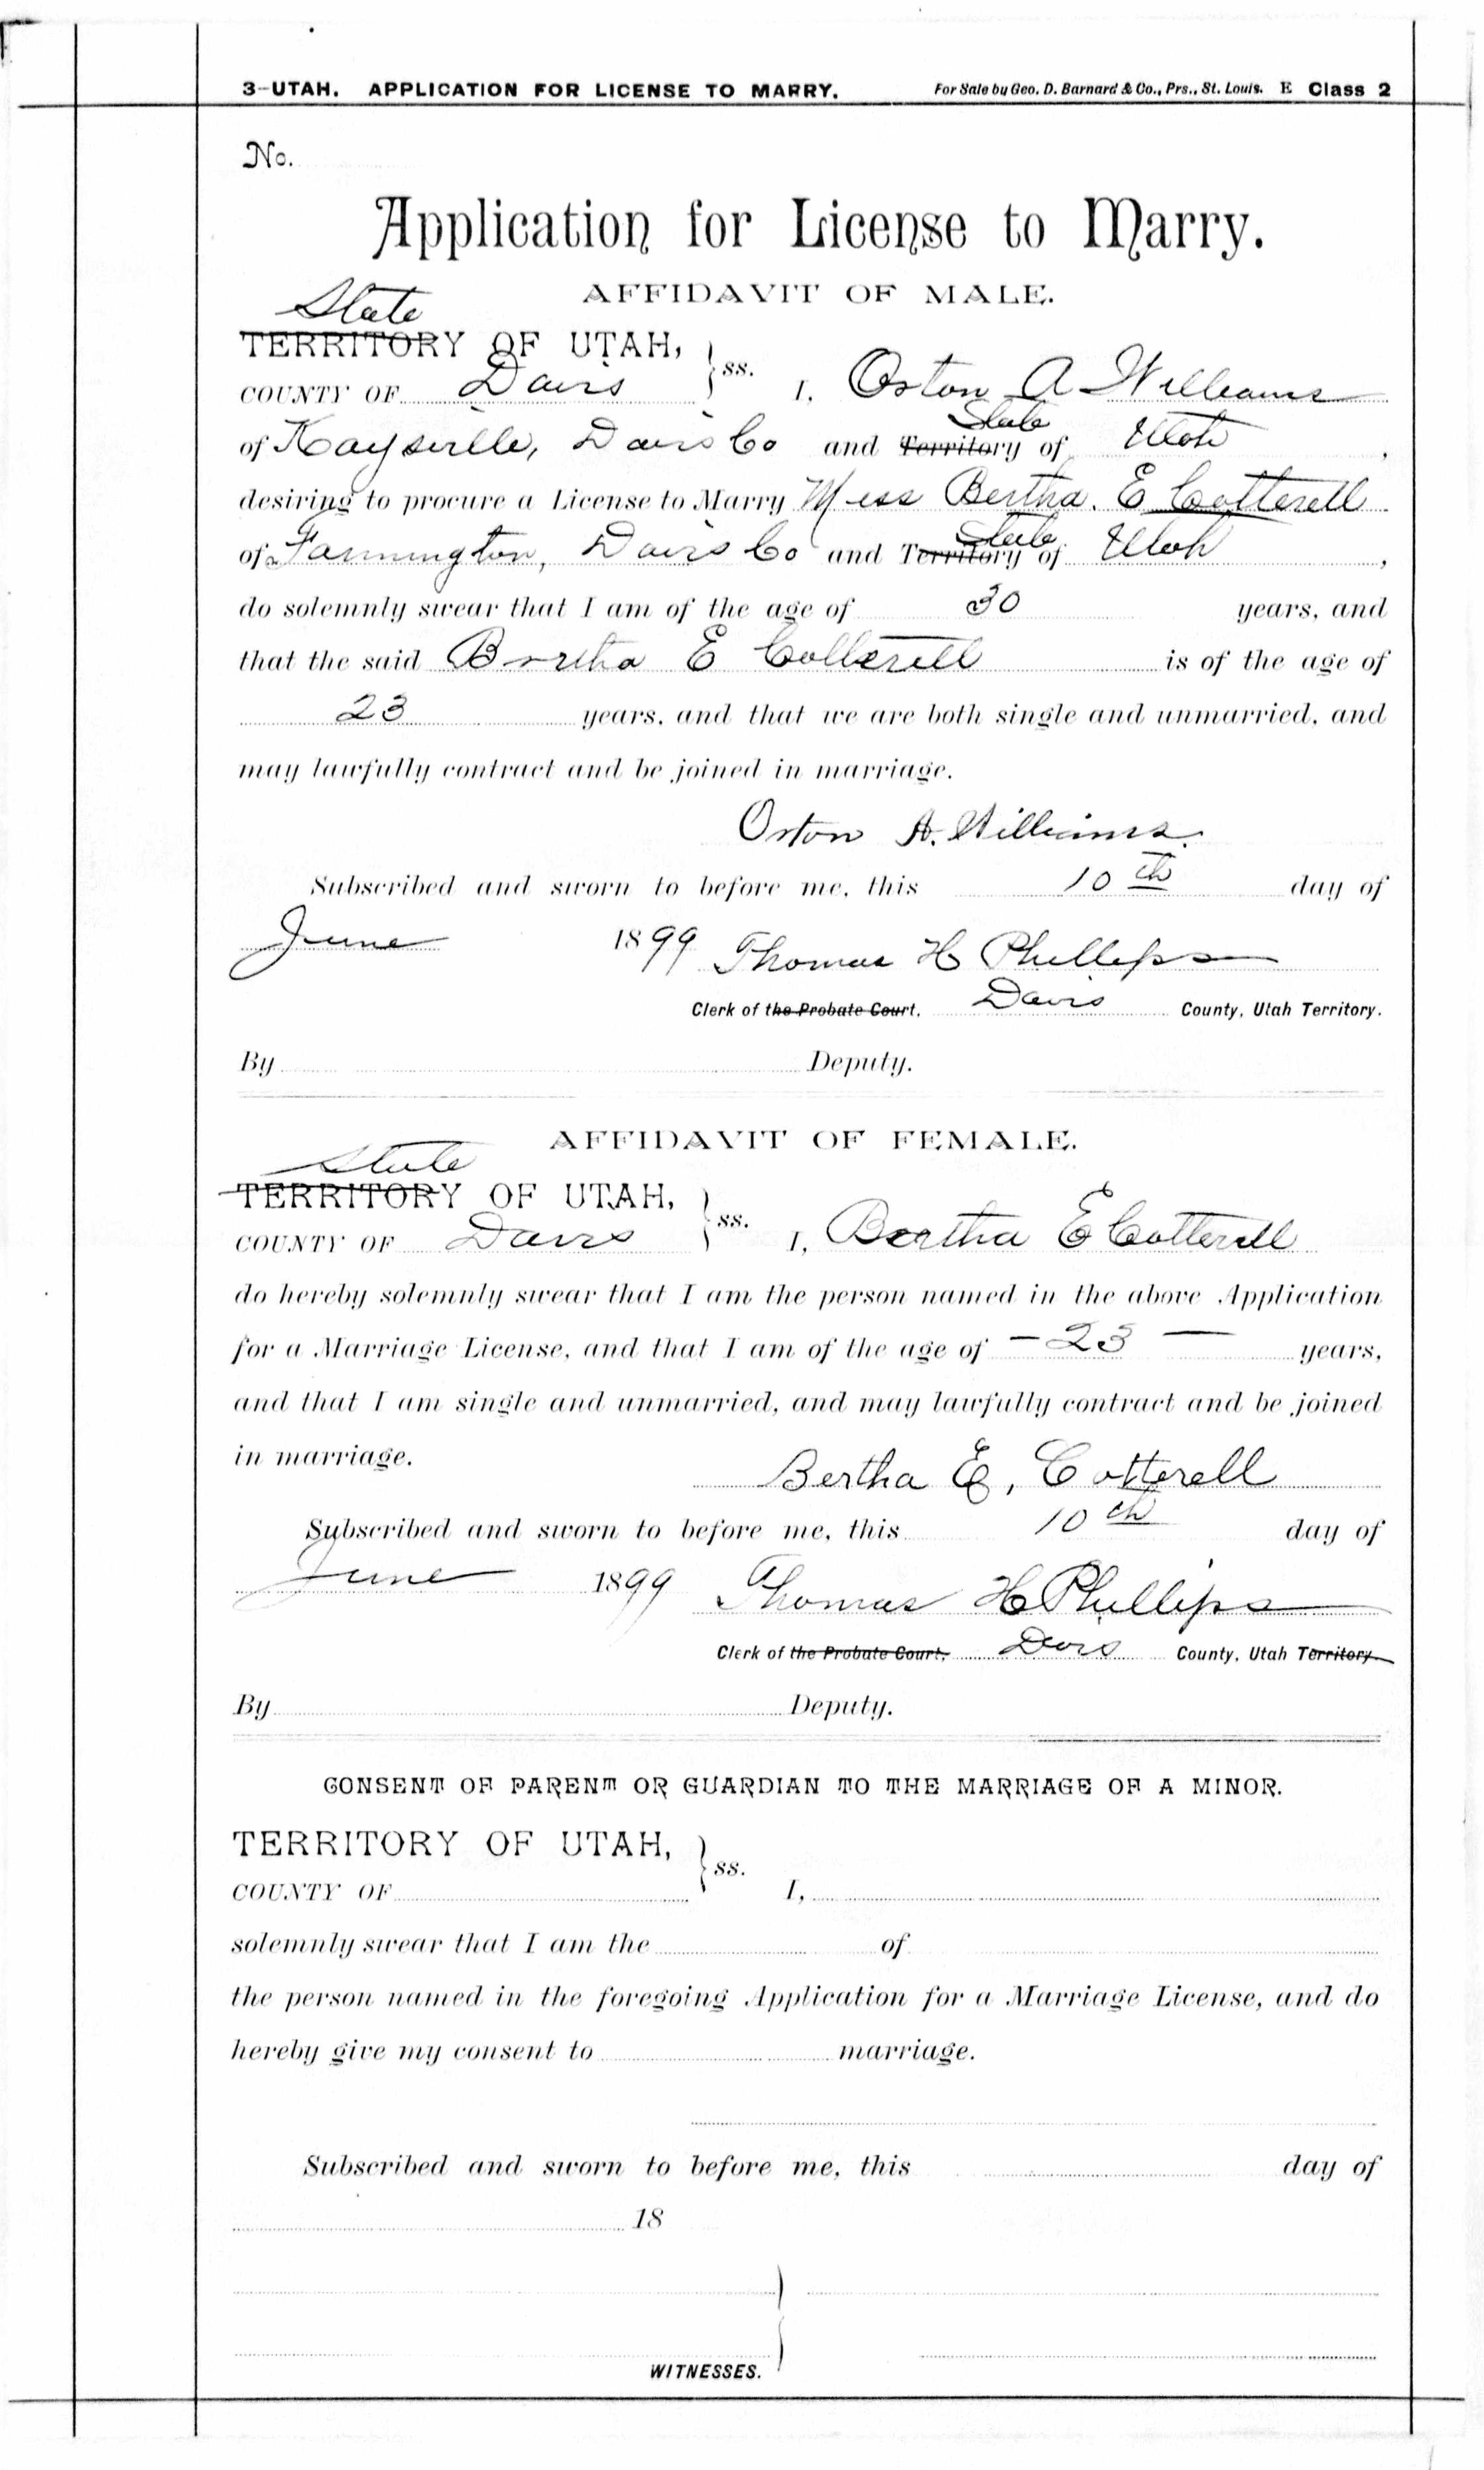 3-UTAH. APPLICATION FOR LICENSE TO MARRY. For Sale by Geo. D. Barnard & Co., Prs., St. Louis. E Class 2
No.
Application for License to Marry.
AFFIDAVIT OF MALE.
State
TERRITORY OF UTAH,
COUNTY OF Davis ss. I, Oston A Williams
of Kaysville, Davis Co and Territory State of Utah,
desiring to procure a License to Marry Miss Bertha. E Cotterell
of Farmington, Davis Co and Territory State of Utah,
do solemnly swear that I am of the age of 30 years, and
that the said Bertha E Cotterell is of the age of
23 years, and that we are both single and unmarried, and
may lawfully contract and be joined in marriage.
Oston A. Williams.
Subscribed and sworn to before me, this 10th day of
June 1899 Thomas H Phillips
Clerk of the Probate Court, Davis County, Utah Territory.
By Deputy.
AFFIDAVIT OF FEMALE.
State
TERRITORY OF UTAH,
COUNTY OF Davis ss. I, Bertha E Cotterell
do hereby solemnly swear that I am the person named in the above Application
for a Marriage License, and that I am of the age of - 23 - years,
and that I am single and unmarried, and may lawfully contract and be joined
in marriage.
Bertha E, Cotterell
Subscribed and sworn to before me, this 10th day of
June 1899 Thomas H Phillips
Clerk of the Probate Court, Davis County, Utah Territory.
By Deputy.
CONSENT OF PARENT OR GUARDIAN TO THE MARRIAGE OF A MINOR.
TERRITORY OF UTAH,
COUNTY OF ss. I,
solemnly swear that I am the of
the person named in the foregoing Application for a Marriage License, and do
hereby give my consent to marriage.
Subscribed and sworn to before me, this day of
18
WITNESSES.